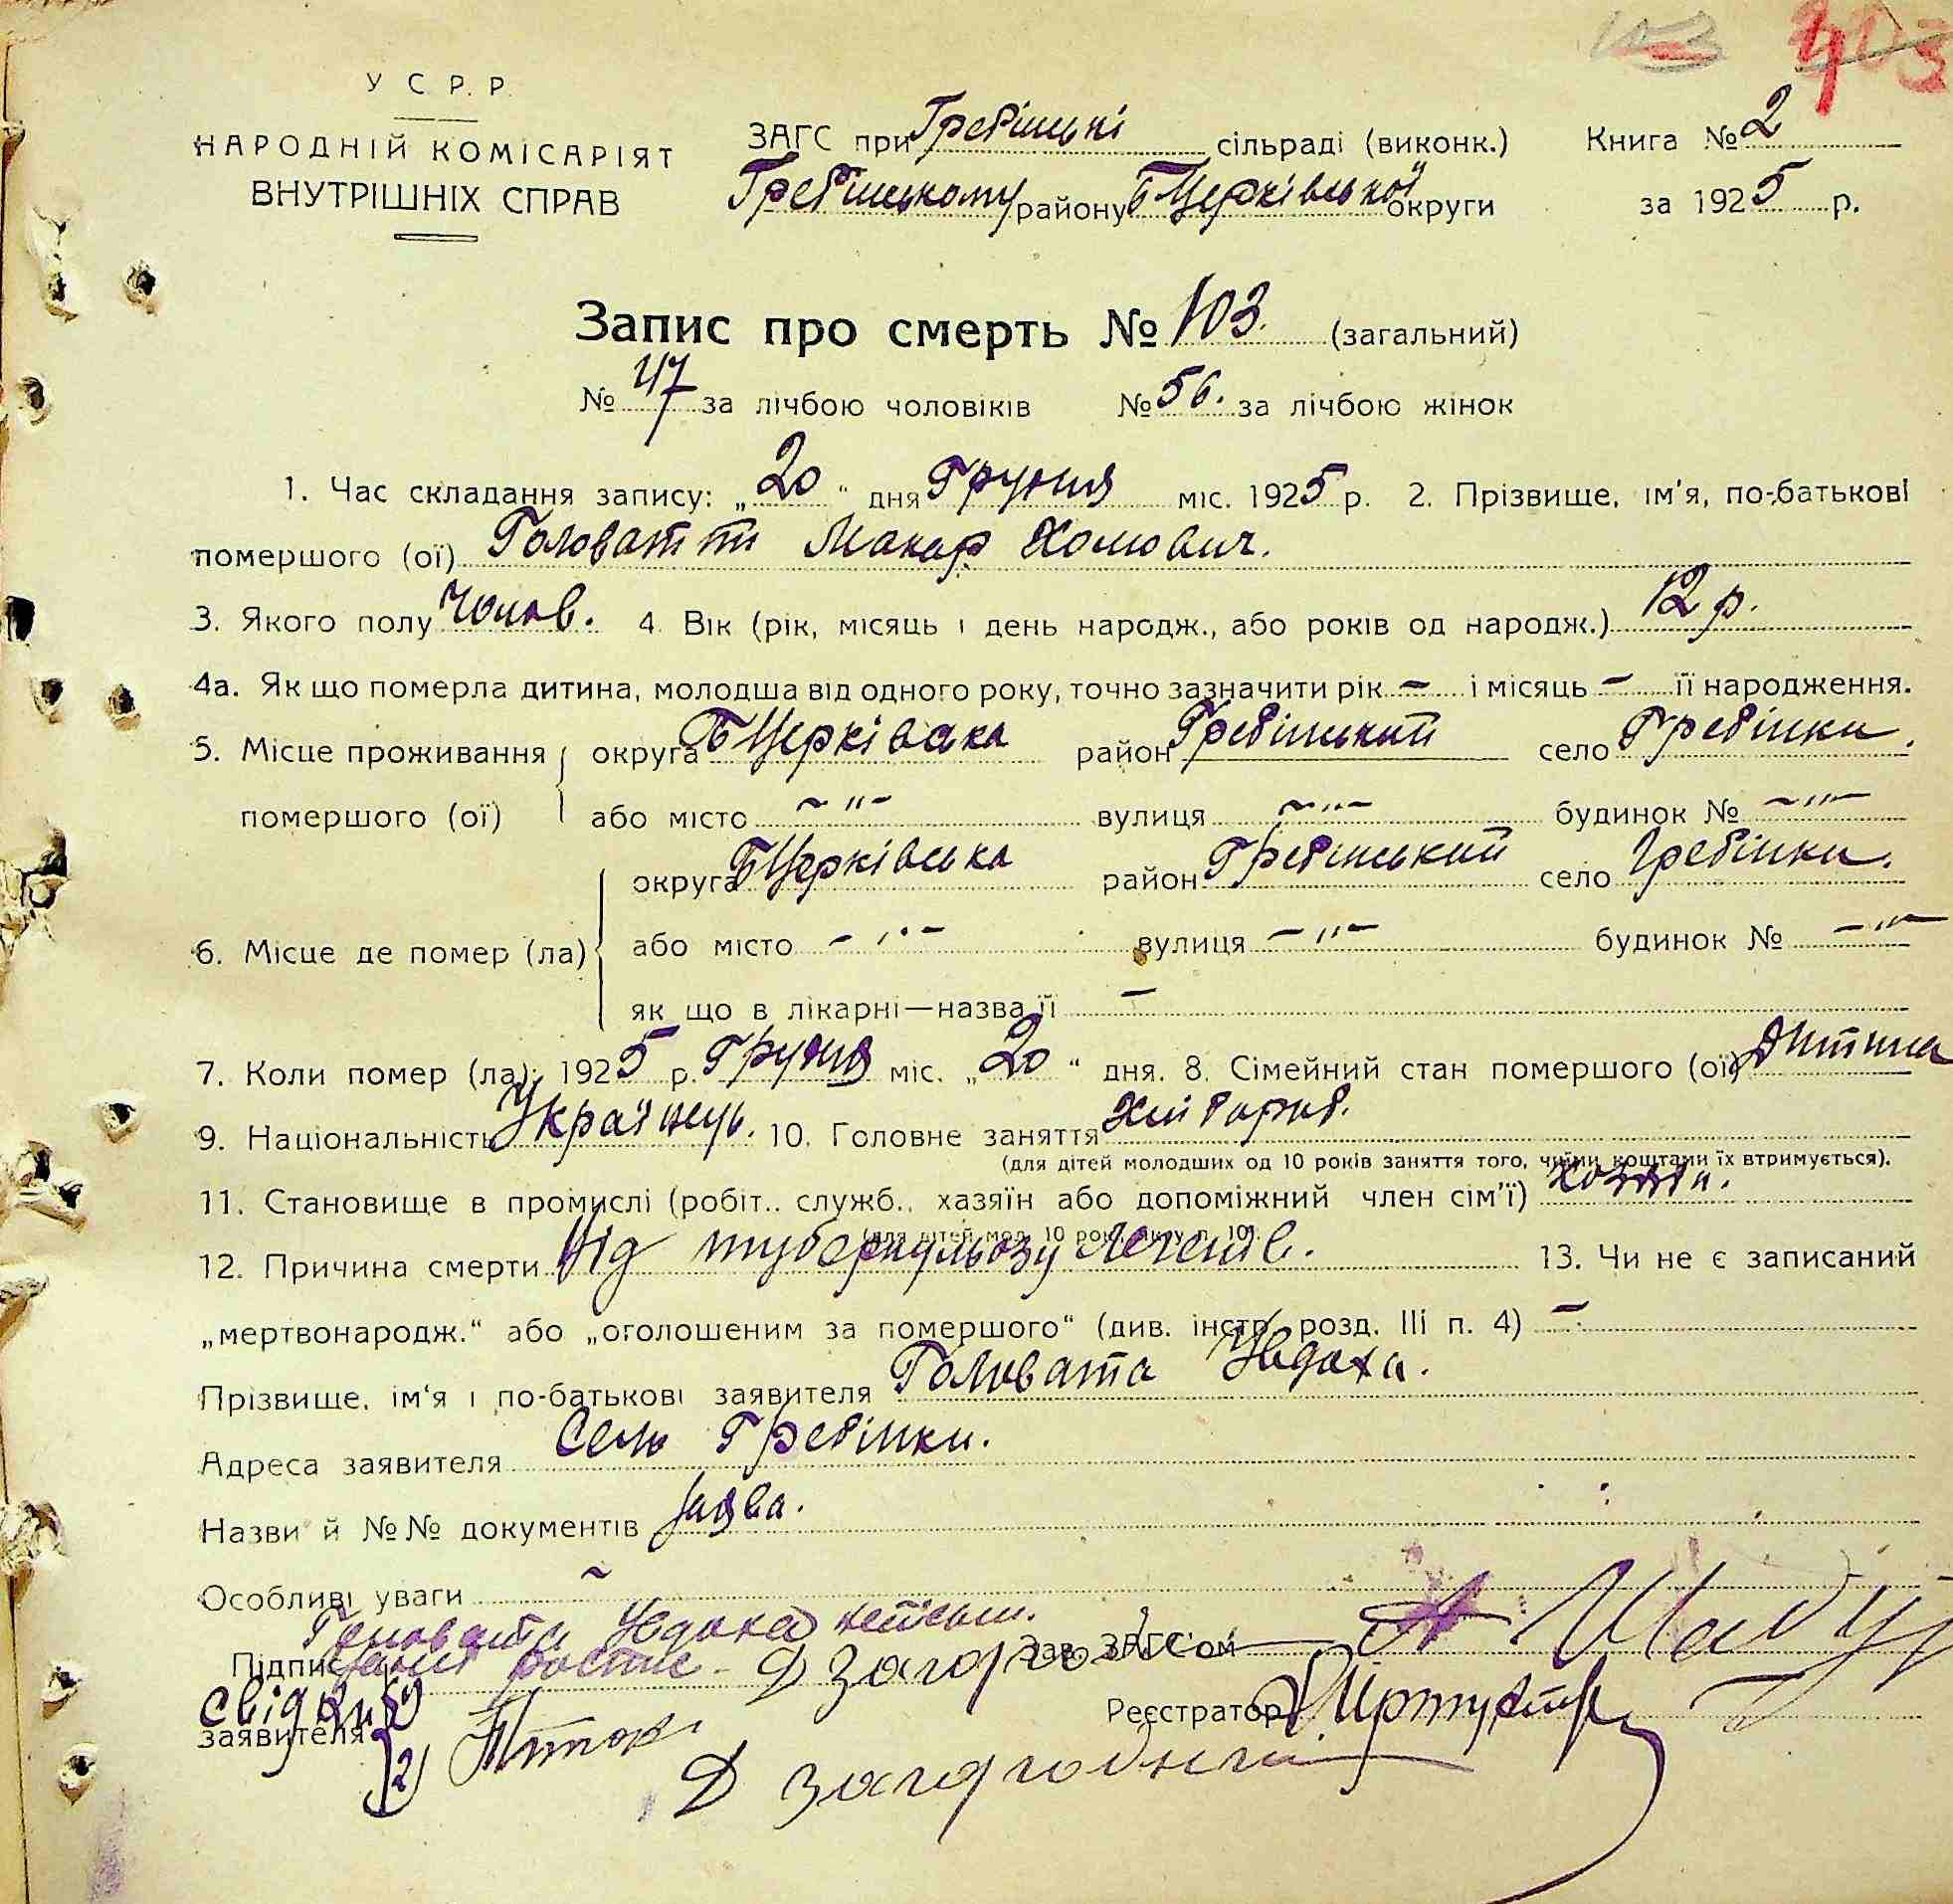 103 403
У С Р. Р.
НАРОДНІЙ КОМІСАРІЯТ
ВНУТРІШНІХ СПРАВ
ЗАГС при Гребінські сільраді (виконк.) Книга № 2
Гребінському району БЦерківської округи за 1925 р.
Запис про смерть № 103. (загальний)
№ 47 за лічбою чоловіків № 56. за лічбою жінок
1. Час складання запису: „20" дня Грудня міс. 1925 р. 2. Прізвище, ім'я, по-батькові
помершого (ої) Головатти Макар Хомович.
3. Якого полу Чолов. 4. Вік (рік, місяць і день народж., або років од народж.) 12 р.
4а. Як що померла дитина, молодша від одного року, точно зазначити рік – і місяць – її народження.
5. Місце проживання округа БЦерківска район Гребінський село Гребінки.
помершого (ої) або місто –"– вулиця –"– будинок № –"–
округа БЦерківська район Гребінський село Гребінки.
6. Місце де помер (ла) або місто –"– вулиця –"– будинок № –"–
як що в лікарні—назва її –
7. Коли помер (ла): 1925 р. Грудня міс. „20" дня. 8. Сімейний стан помершого (ої) Дитина
9. Національність Українець. 10. Головне заняття Хлібороб.
(для дітей молодших од 10 років заняття того, чиїми коштами їх втримується).
11. Становище в промислі (робіт., служб., хазяїн або допоміжний член сім'ї) хозяїн.
12. Причина смерти Від туберкульозу легенів. 13. Чи не є записаний
„мертвонародж." або „оголошеним за помершого" (див. інстр. розд. III п. 4) –
Прізвище, ім'я і по-батькові заявителя Головата Увдоха.
Адреса заявителя Село Гребінки.
Назви й №№ документів Заява.
Особливі уваги ~
Головата Увдоха
Підпис Д Загор Зав. ЗАГС'ом А
Свідки 1)
заявителя Реєстратор
2)
Д Загородній